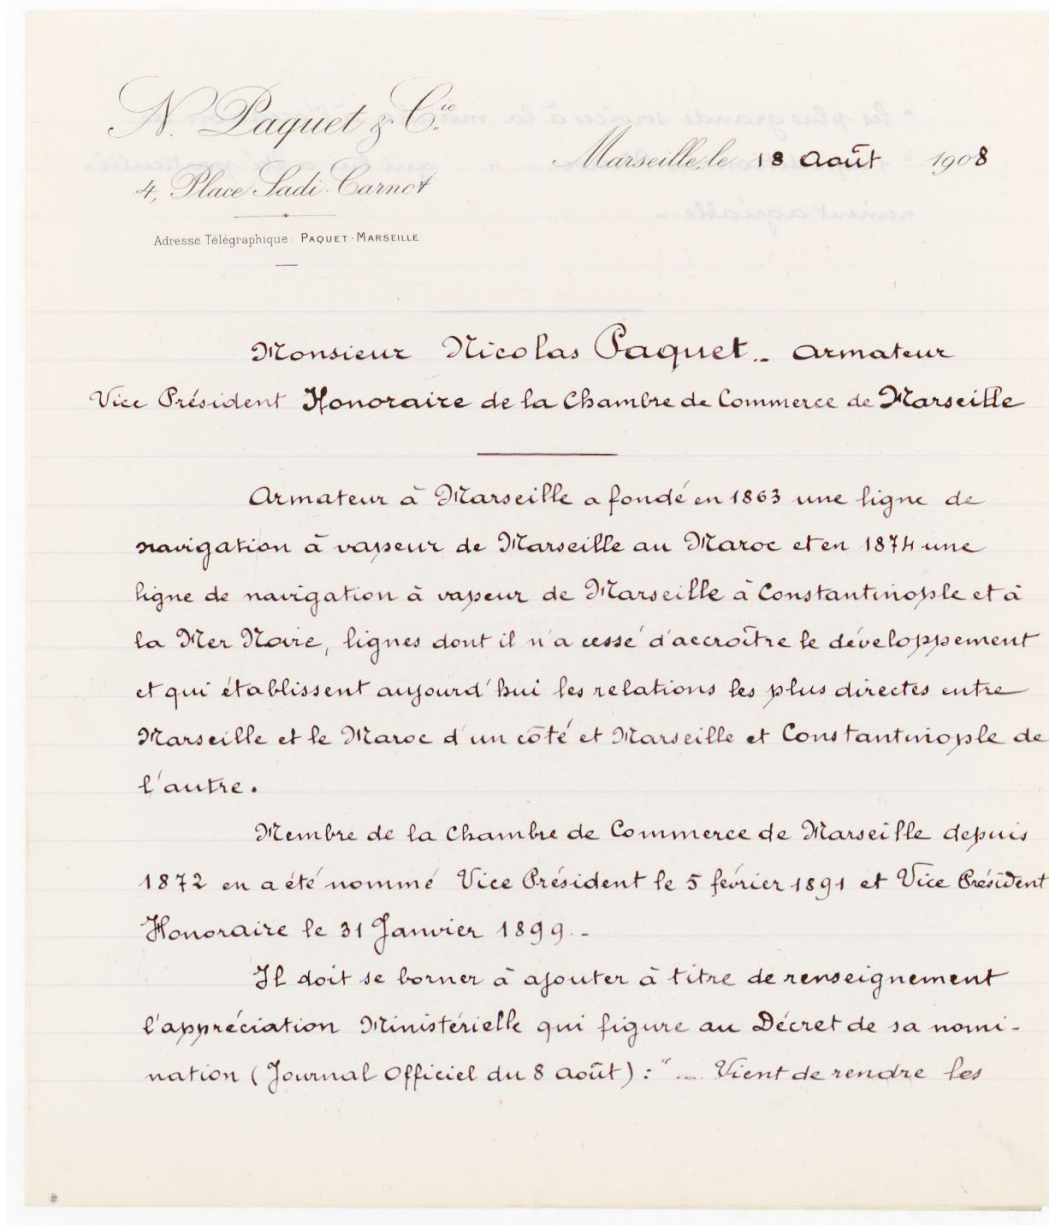 N. Paquet & Cie.
Marseille, le 18 Août 1908
4, Place Sadi-Carnot
Adresse Télégraphique: PAQUET-MARSEILLE
Monsieur Nicolas Paquet _ Armateur
Vice Président Honoraire de la Chambre de Commerce de Marseille
Armateur à Marseille a fondé en 1863 une ligne de
navigation à vapeur de Marseille au Maroc et en 1874 une
ligne de navigation à vapeur de Marseille à Constantinople et à
la Mer Noire, lignes dont il n'a cessé d'accroître le développement
et qui établissent aujourd'hui les relations les plus directes entre
Marseille et le Maroc d'un côté et Marseille et Constantinople de
l'autre.
Membre de la Chambre de Commerce de Marseille depuis
1872 en a été nommé Vice Président le 5 février 1891 et Vice Président
Honoraire le 31 Janvier 1899._
Il doit se borner à ajouter à titre de renseignement
l'appréciation Ministérielle qui figure au Décret de sa nomi-
nation (Journal Officiel du 8 Août) : "... Vient de rendre les